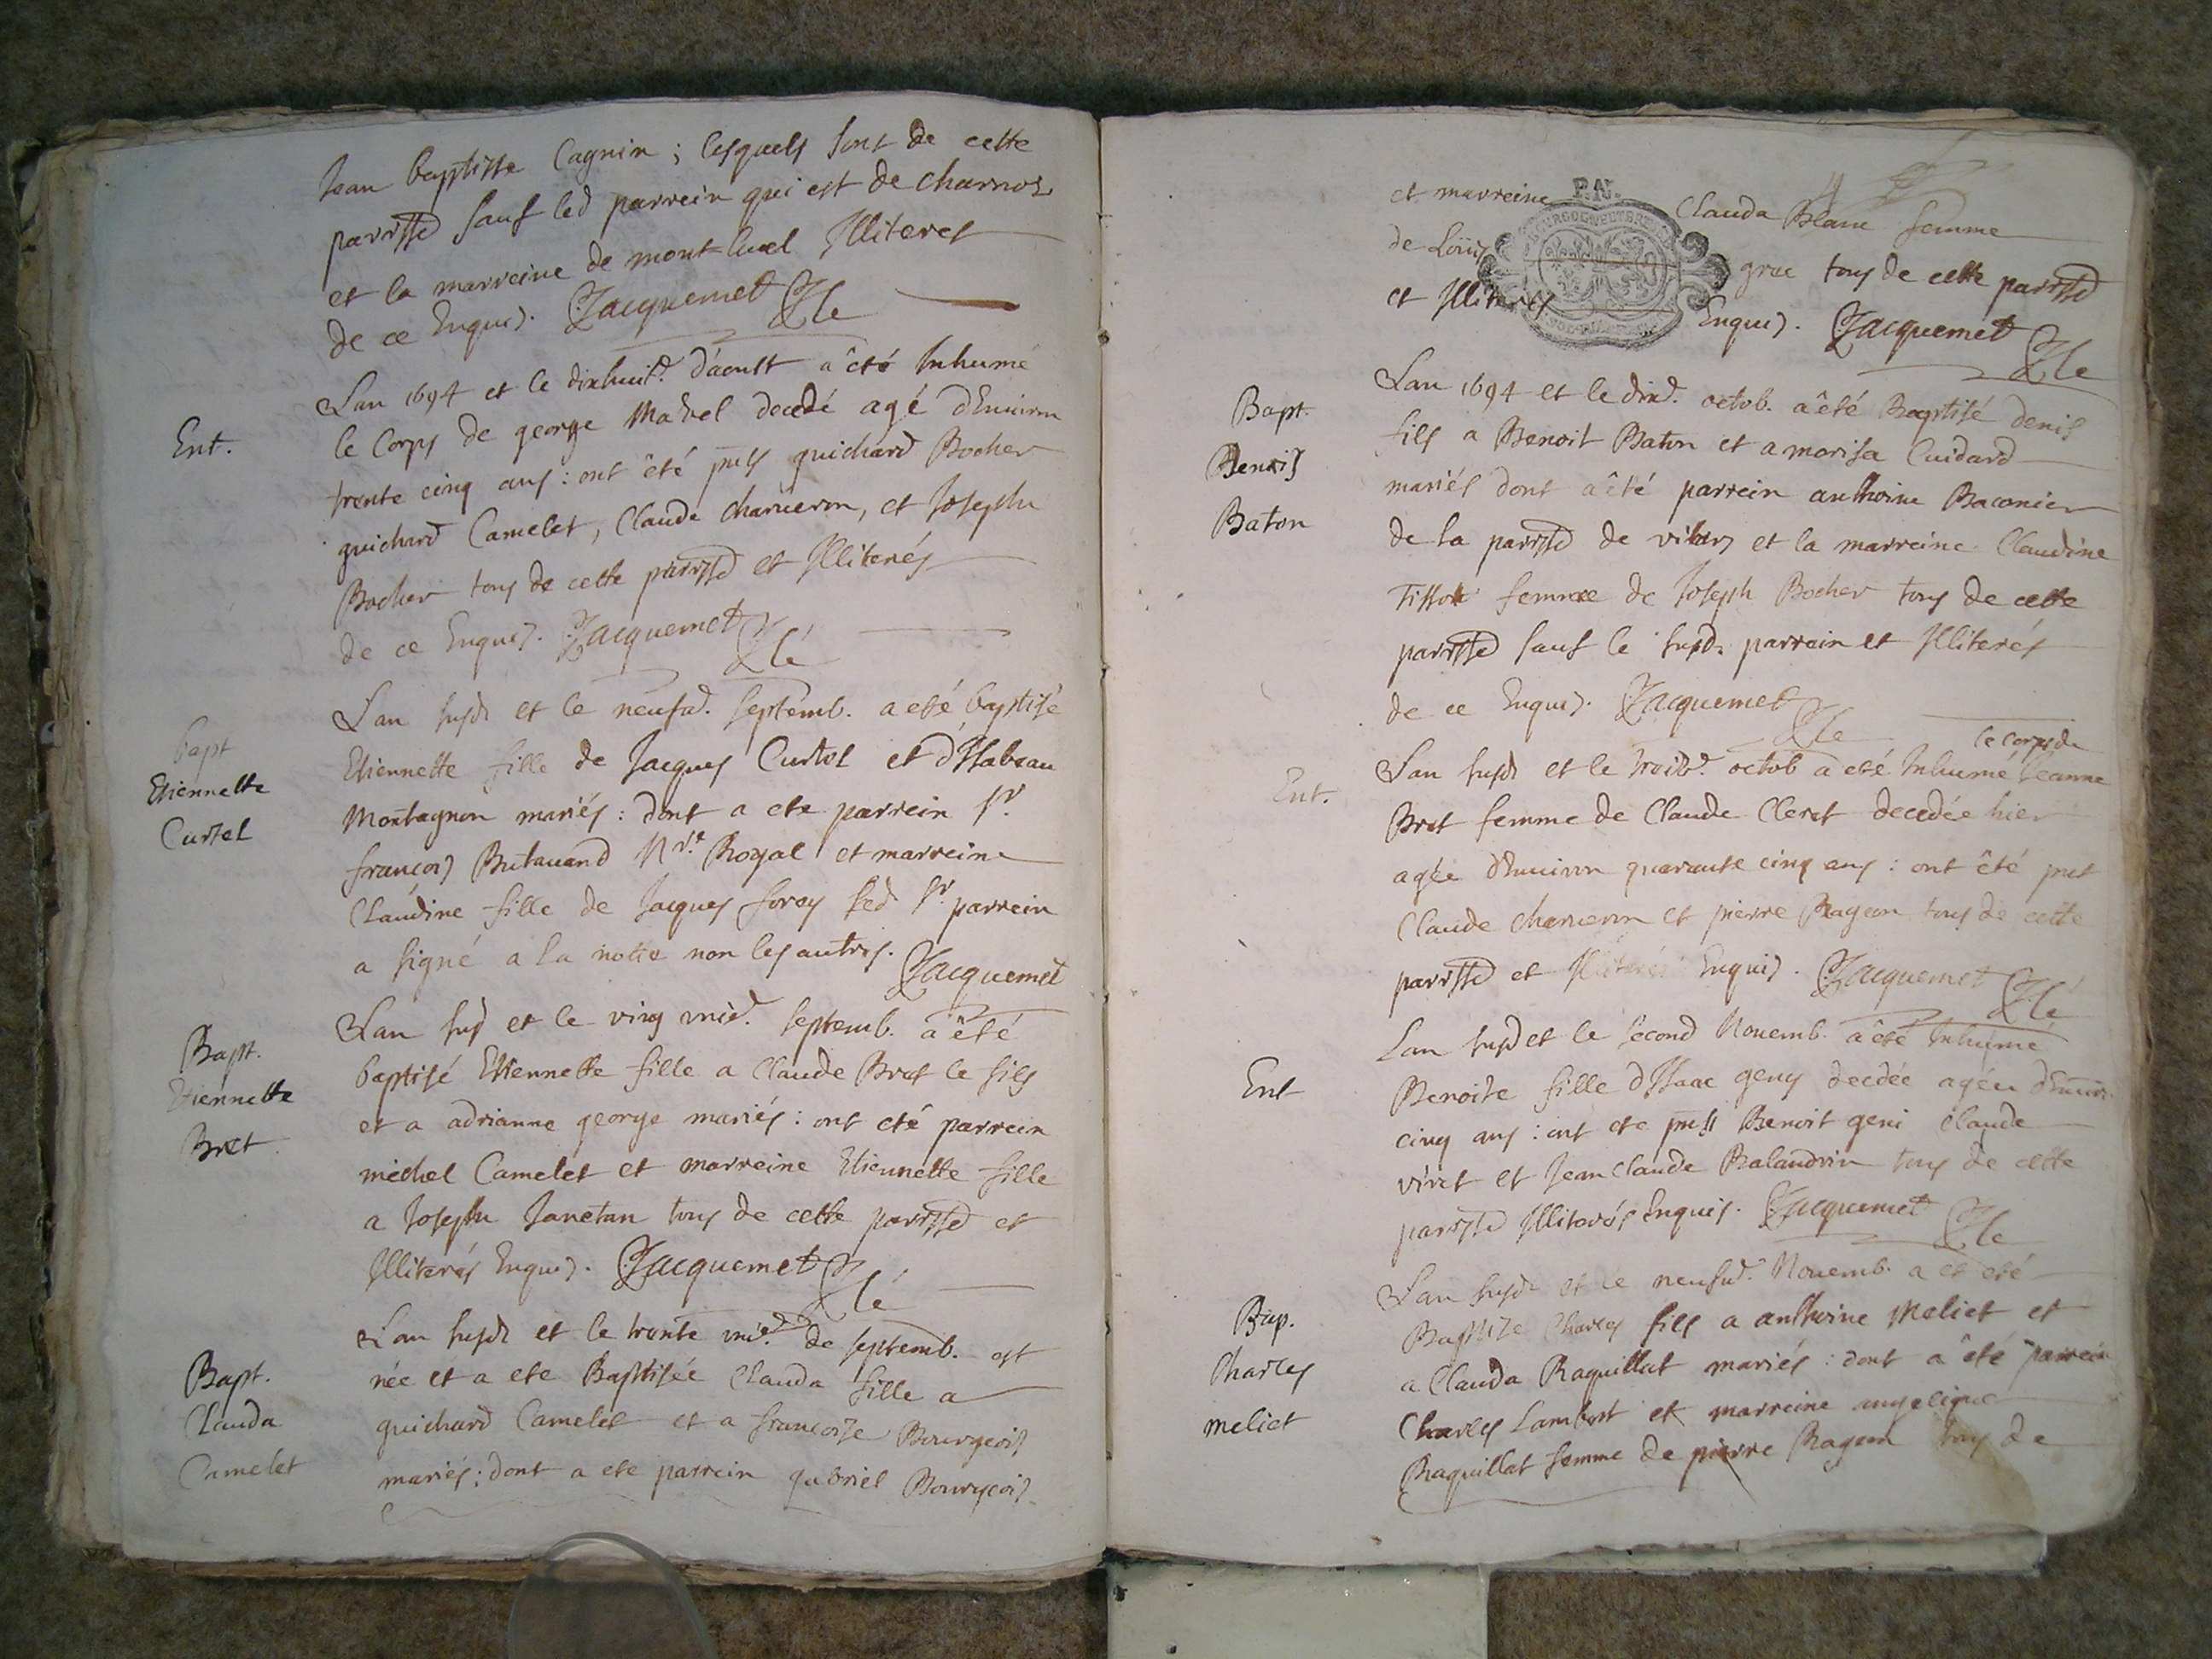 Jean baptiste Cagnin ; lesquels sont de cette
parrsse sauf led parrein qui est de charnoz
et la marreine de montluel Illiteres
de ce Enquis. Jacquemet
Ent.
Lan 1694 et le dixhuit.e d'aoust a êté Inhumé
le Corps de george Matrel decedé agé d'Environ
trente cinq ans : ont êté pnts guichard Bocher
guichard Camelet, Claude charveron, et Joseph
Bocher tous de cette parrsse et Illiterés
de ce Enquis. Jacquemet
bapt
Etiennette
Curtel
Lan susd et le neufud. septemb. a eté baptisé
Etiennette fille de Jacques Curtol et d'Isabeau
Montagnon mariés : dont a ete parrein sr.
francois Butavand Nre Royal et marreine
Claudine fille de Jacques foray led sr parrein
a signé a la notte non les autres. Jacquemet
Bapt.
Etiennette
Bret
Lan susd et le ving unied. septemb. a êté
baptisé Etiennette fille a Claude Bret le fils
et a adrianne george mariés : ont eté parrein
michel Camelet et marreine Etiennette fille
a Joseph Janetan tous de cette parrsse et
Illiterés Enquis. Jacquemet
Bapt.
Clauda
Camelet
Lan susd et le trente unied. de septemb. est
née et a ete Baptisée Clauda fille a
guichard Camelet et a francoise Bourgeois
mariés : dont a ete parrein gabriel Bourgeois
et marreine Clauda Blanc femme
de Loüis grac tous de cette parrsse
et Illiterés Enquis. Jacquemet
Bapt.
Denis
Baton
Lan 1694 et le dixd. octob. a êté Baptisé denis
fils a Benoit Baton et a marisa Cuidard
mariés dont a êté parrein anthoine Baconier
de la parrsse de vilars et la marreine Claudine
Tissot femme de Joseph Bocher tous de cette
parrsse sauf le susd. parrein et Illiterés
de ce Enquis. Jacquemet
Ent.
le corps de
Lan susd et le octob a eté Inhumé Jeanne
Bret femme de Claude Cleret decedée hier
agée d'Environ quarante cinq ans : ont êté pnts
Claude charveron et pierre Rageon tous de cette
parrsse et Illiterés Enquis. Jacquemet
Ent
Lan susd et le second Novemb. a êté Inhumé
Benoite fille d'Isaac geny decdée agée d'Envir.
cinq ans : ont ete pnts Benoit geni Claude
viret et Jean Claude Balandrin tous de cette
parrsse Illiterés Enquis. Jacquemet
Bap.
Charles
meliet
Lan susd et le neufud. Novemb. a et eté
Baptize Charles fils a anthoine Meliet et
a Clauda Raquillat mariés : dont a êté parrein
Charles Lambert et marreine angelique
Raquillat femme de pierre Rageon tous de